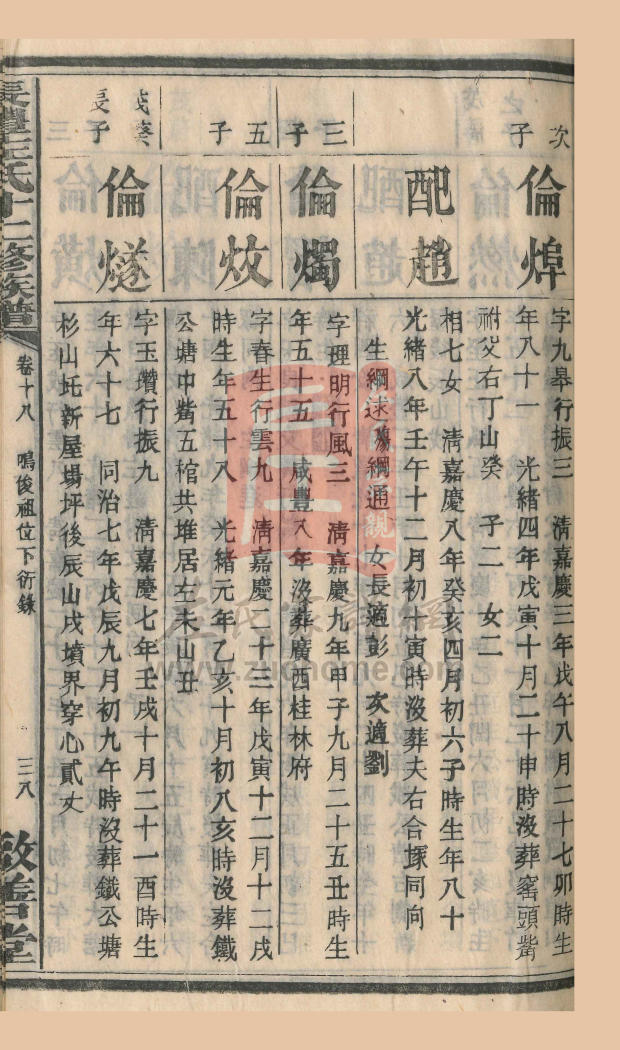 次子
倫焊
字九皋行振三 淸嘉慶三年戊午八月二十七卯時生
年八十一 光緖四年戊寅十月二十申時沒葬窰頭嘴
祔父右丁山癸 子二 女二
配趙
相七女 淸嘉慶八年癸亥四月初六子時生年八十
光緖八年壬午十二月初十寅時沒葬夫右合塚同向
生綱述 綱通 女長適彭 次適劉
三子
倫燭
字理明行風三 淸嘉慶九年甲子九月二十五丑時生
年五十五 咸豐八年沒葬廣西桂林府
五子
倫炆
字春生行雲九 淸嘉慶二十三年戊寅十二月十二戌
時生年五十八 光緖元年乙亥十月初八亥時沒葬鐵
公塘中嘴五棺共堆居左未山丑
茂葵長子
倫燧
字玉瓚行振九 淸嘉慶七年壬戌十月二十一酉時生
年六十七 同治七年戊辰九月初九午時沒葬鐵公塘
杉山坵新屋場坪後辰山戌墳界穿心貳丈
長豐左氏十二修族譜
卷十八 鳴俊祖位下衍錄
三八
敦善堂
左氏家譜網
www.zuohome.com